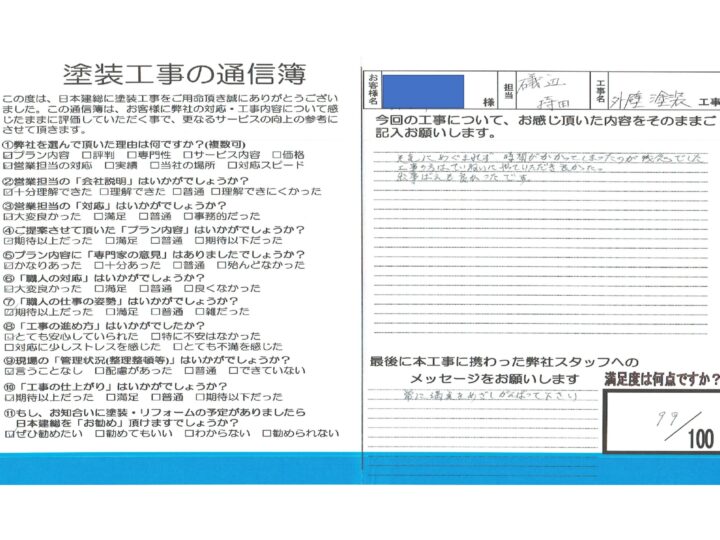 塗装工事の通信簿
この度は、日本建総に塗装工事をご用命頂き誠にありがとうござい
ました。この通信簿は、お客様に弊社の対応・工事内容について感
じたままに評価していただく事で、更なるサービスの向上の参考に
させて頂きます。
①弊社を選んで頂いた理由は何ですか?(複数可)
☑プラン内容 □評判 □専門性 □サービス内容 □価格
☑営業担当の対応 □実績 □当社の場所 □対応スピード
②営業担当の「会社説明」はいかがでしょうか?
☑十分理解できた □理解できた □普通 □理解できにくかった
③営業担当の「対応」はいかがでしょうか?
☑大変良かった □満足 □普通 □事務的だった
④ご提案させて頂いた「プラン内容」はいかがでしょうか?
☑期待以上だった □満足 □普通 □期待以下だった
⑤プラン内容に「専門家の意見」はありましたでしょうか?
☑かなりあった □十分あった □普通 □殆んどなかった
⑥「職人の対応」はいかがでしょうか?
☑大変良かった □満足 □普通 □良くなかった
⑦「職人の仕事の姿勢」はいかがでしょうか?
☑期待以上だった □満足 □普通 □雑だった
⑧「工事の進め方」はいかがでしたか?
☑とても安心していられた □特に不安はなかった
□対応に少しストレスを感じた □とても不満を感じた
⑨現場の「管理状況(整理整頓等)」はいかがでしょうか?
☑言うことなし □配慮があった □普通 □できていない
⑩「工事の仕上がり」はいかがでしょうか?
☑期待以上だった □満足 □普通 □期待以下だった
⑪もし、お知合いに塗装・リフォームの予定がありましたら
日本建総を「お勧め」頂けますでしょうか?
☑ぜひ勧めたい □勧めてもいい □わからない □勧められない
お客様名 様 担当 磯辺 持田 工事名 外壁塗装 工事
今回の工事について、お感じ頂いた内容をそのままご
記入お願いします。
天気にめぐまれず 時間がかかってしまったのが残念でした
工事の方はていねいにやっていただき良かった。
仕事は人も良かったです。
最後に本工事に携わった弊社スタッフへの
メッセージをお願いします
常に満点をめざしがんばって下さい
満足度は何点ですか?
99/100